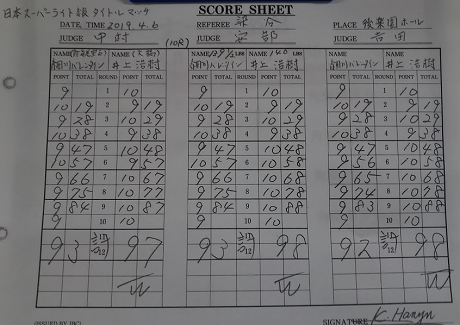 日本スーパーライト級 タイトルマッチ SCORE SHEET
DATE, TIME 2019.4.6 REFEREE PLACE 後楽園ホール
JUDGE 中村 (10R) JUDGE 安部 JUDGE 吉田
NAME NAME 139½ LBS 140 LBS NAME NAME
細川バレンタイン 井上浩樹 細川バレンタイン 井上浩樹 細川バレンタイン 井上浩樹
POINT TOTAL ROUND POINT TOTAL POINT TOTAL ROUND POINT TOTAL POINT TOTAL ROUND POINT TOTAL
9 1 10 9 1 10 9 1 10
10 19 2 9 19 10 19 2 9 19 10 19 2 9 19
9 28 3 10 29 9 28 3 10 29 9 28 3 10 29
10 38 4 9 38 10 38 4 9 38 10 38 4 9 38
9 47 5 10 48 9 47 5 10 48 9 47 5 10 48
10 57 6 9 57 10 57 6 10 58 9 56 6 10 58
9 66 7 10 67 9 66 7 10 68 9 65 7 10 68
9 75 8 10 77 9 75 8 10 78 9 74 8 10 78
9 84 9 10 87 9 84 9 10 88 9 83 9 10 88
9 10 10 9 10 10 9 10 10
93 97 93 98 92 98
W W W
(ISSUED BY JBC) SIGNATURE